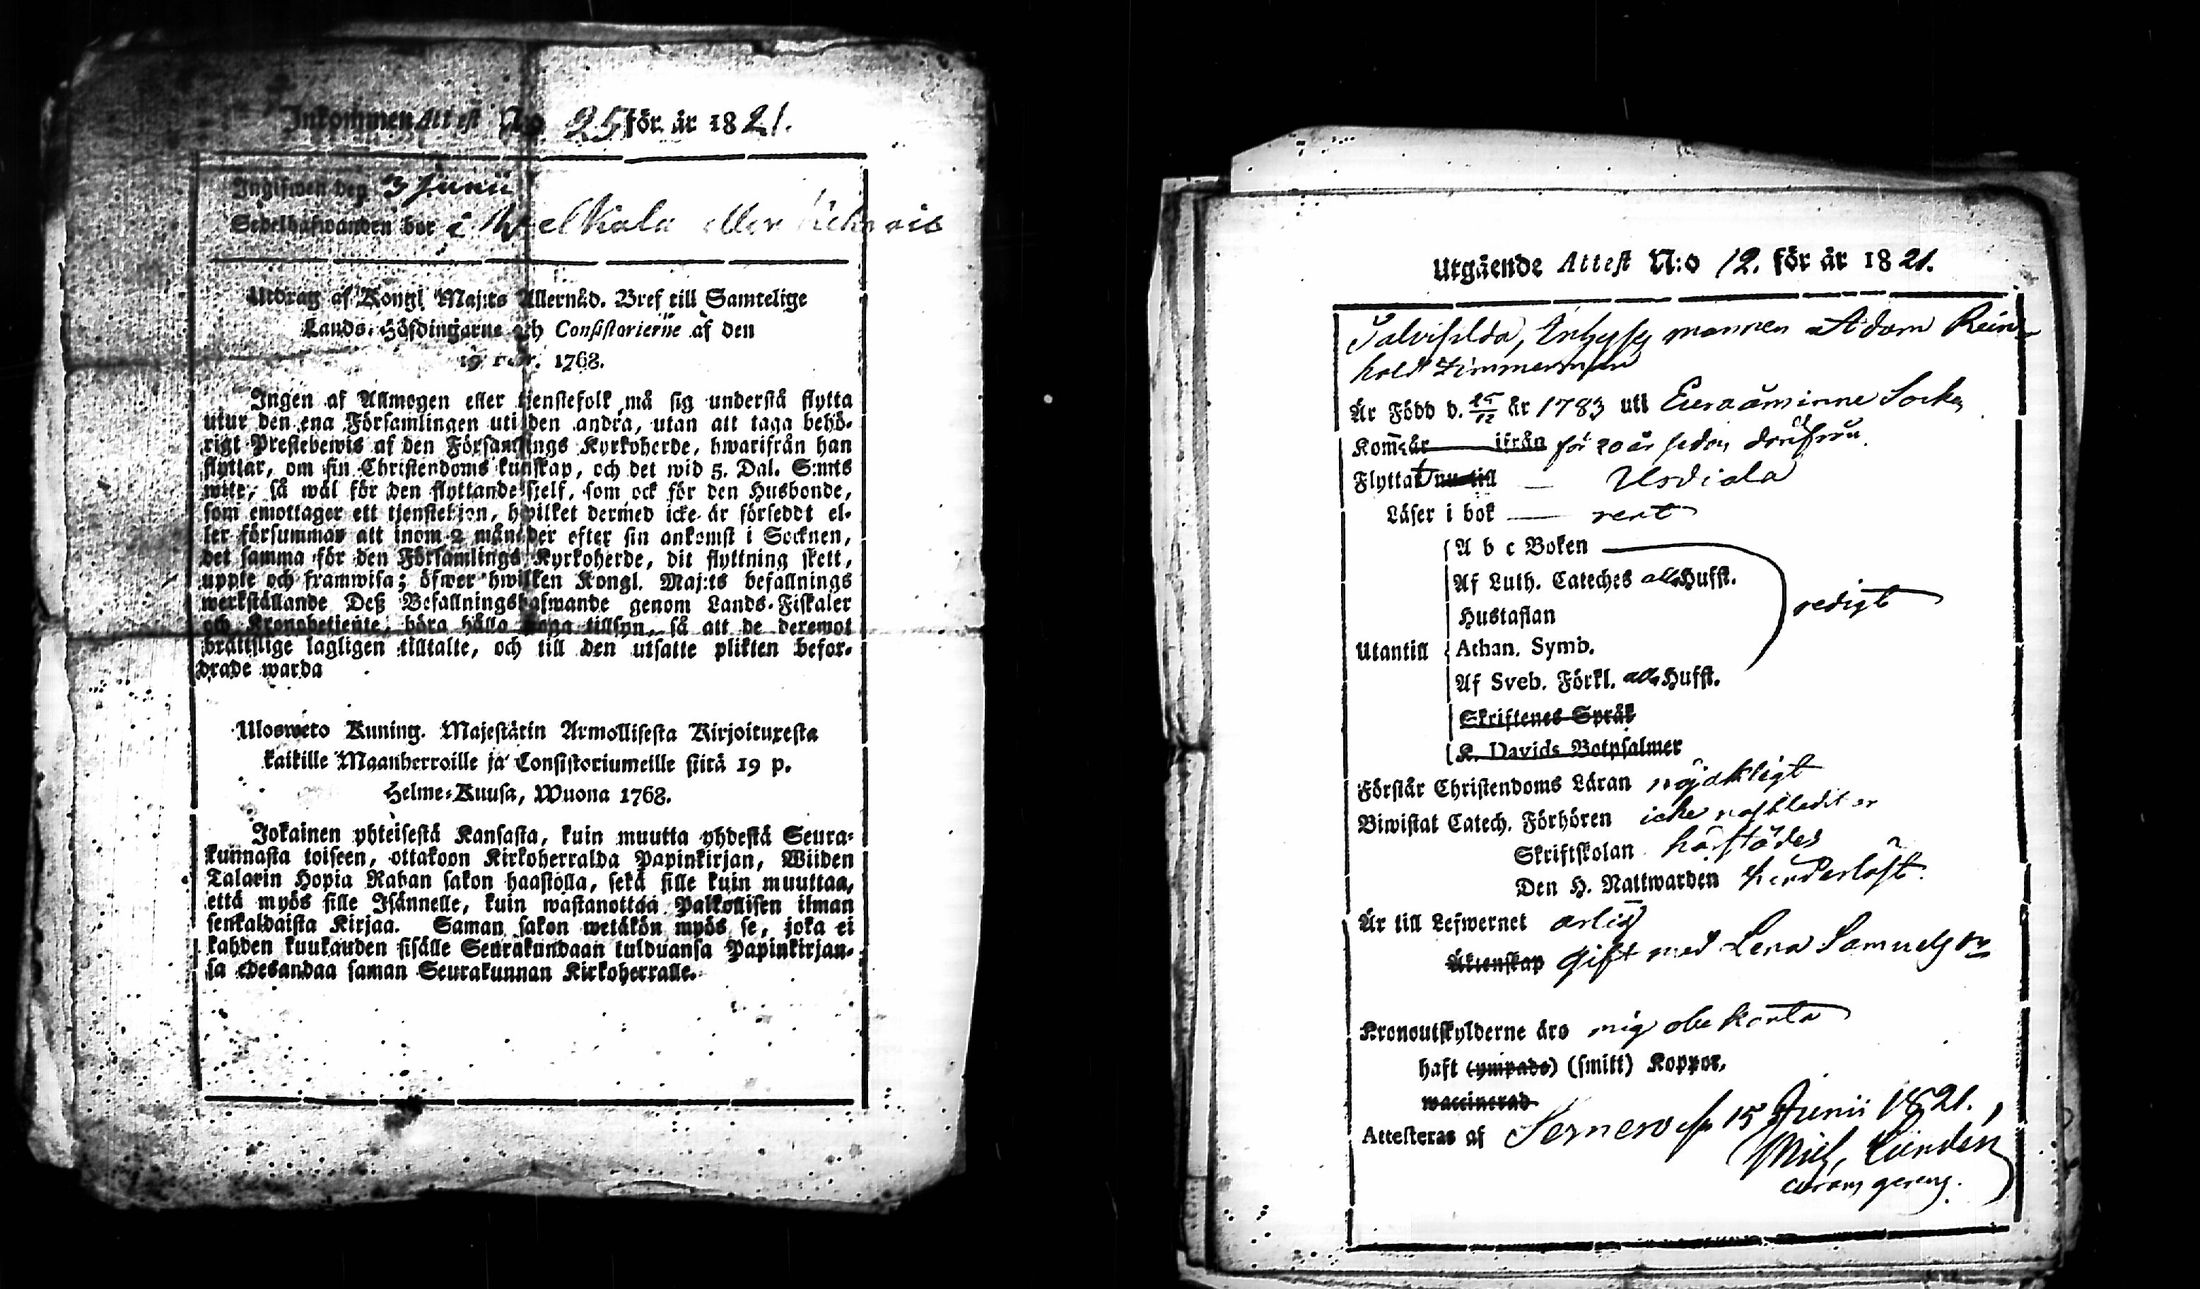 Inkommen Attest N:o 25 för år 1821.
Ingifwen den 3 Junii
Sedelhafwanden bor i eller
Utdrag af Kongl Maj:ts Allernåd. Bref till Samtelige
Lands-Höfdingarne och Consistorierne af den
19 Febr. 1768.
Ingen af Allmogen eller tjenstefolk må sig understå flytta
utur den ena Församlingen uti den andra, utan att taga behö-
rigt Prestebewis af den Församlings Kyrkoherde, hwarifrån han
flyttar, om sin Christendoms kunskap, och det wid 5. Dal. S:mts
wite, så wäl för den flyttande sjelf, som ock för den Husbonde,
som emottager ett tjenstehjon, hwilket dermed icke är försedt el-
ler försummar att inom 2 månader efter sin ankomst i Socknen,
det samma för den Församlings Kyrkoherde, dit flyttning skett,
uppte och framwisa; öfwer hwilken Kongl. Maj:ts befallnings
werkställande Deß Befallningshafwande genom Lands-Fiskaler
och Kronobetjente, böra hålla noga tillsyn, så att de deremot
brättslige lagligen tilltalte, och till den utsatte plikten befor-
drade warda
Uloswето Kuning. Majestätin Armollisesta Kirjoituxesta
kaikille Maanherroille ja Consistoriumeille siitä 19 p.
Helme-Kuusa, Wuona 1768.
Jokainen yhteisestä Kansasta, kuin muutta yhdestä Seura-
kunnasta toiseen, ottakoon Kirkoherralda Papinkirjan, Wiiden
Talarin Hopia Rahan sakon haastolla, sekä sille kuin muuttaa,
että myös sille Isännelle, kuin wastanottaa Palkollisen ilman
senkaldaista Kirjaa. Saman sakon wetäkön myös se, joka ei
kahden kuukauden sisälle Seurakundaan tulduansa Papinkirjan-
sa edesandaa saman Seurakunnan Kirkoherralle.
Utgående Attest N:o 12. för år 1821.
Inhyses mannen Adam Rein-
hold Zimmerman
År Född d. 25/12 år 1783 uti Euraåminne Socken
Kom̄ år ifrån för 20 år sedan
Flyttat nu till — Usdiala
Läser i bok — rent
A b c Boken
Af Luth. Cateches alla Hufst.
Hustaflan
redigt
Utantill
Athan. Symb.
Af Sveb. Förkl. alla Hufst.
Skriftenes Språk
K. Davids Botpsalmer
Förstår Christendoms Läran nöjaktigt
Biwistat Catech. Förhören icke
Skriftskolan härstädes
Den H. Nattwarden hinderlöst.
Är till Lefwernet ärlig
Äktenskap gift med Lena Samuels dr
Kronoutskylderne äro mig obekanta
haft (ympade) (smitt) Koppor.
waccinerad
Attesteras af 15 Junii 1821.
Mich. Linden